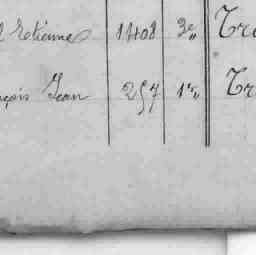 Etienne 1408 3e„ Tr
Jean 257 1re„ Tr